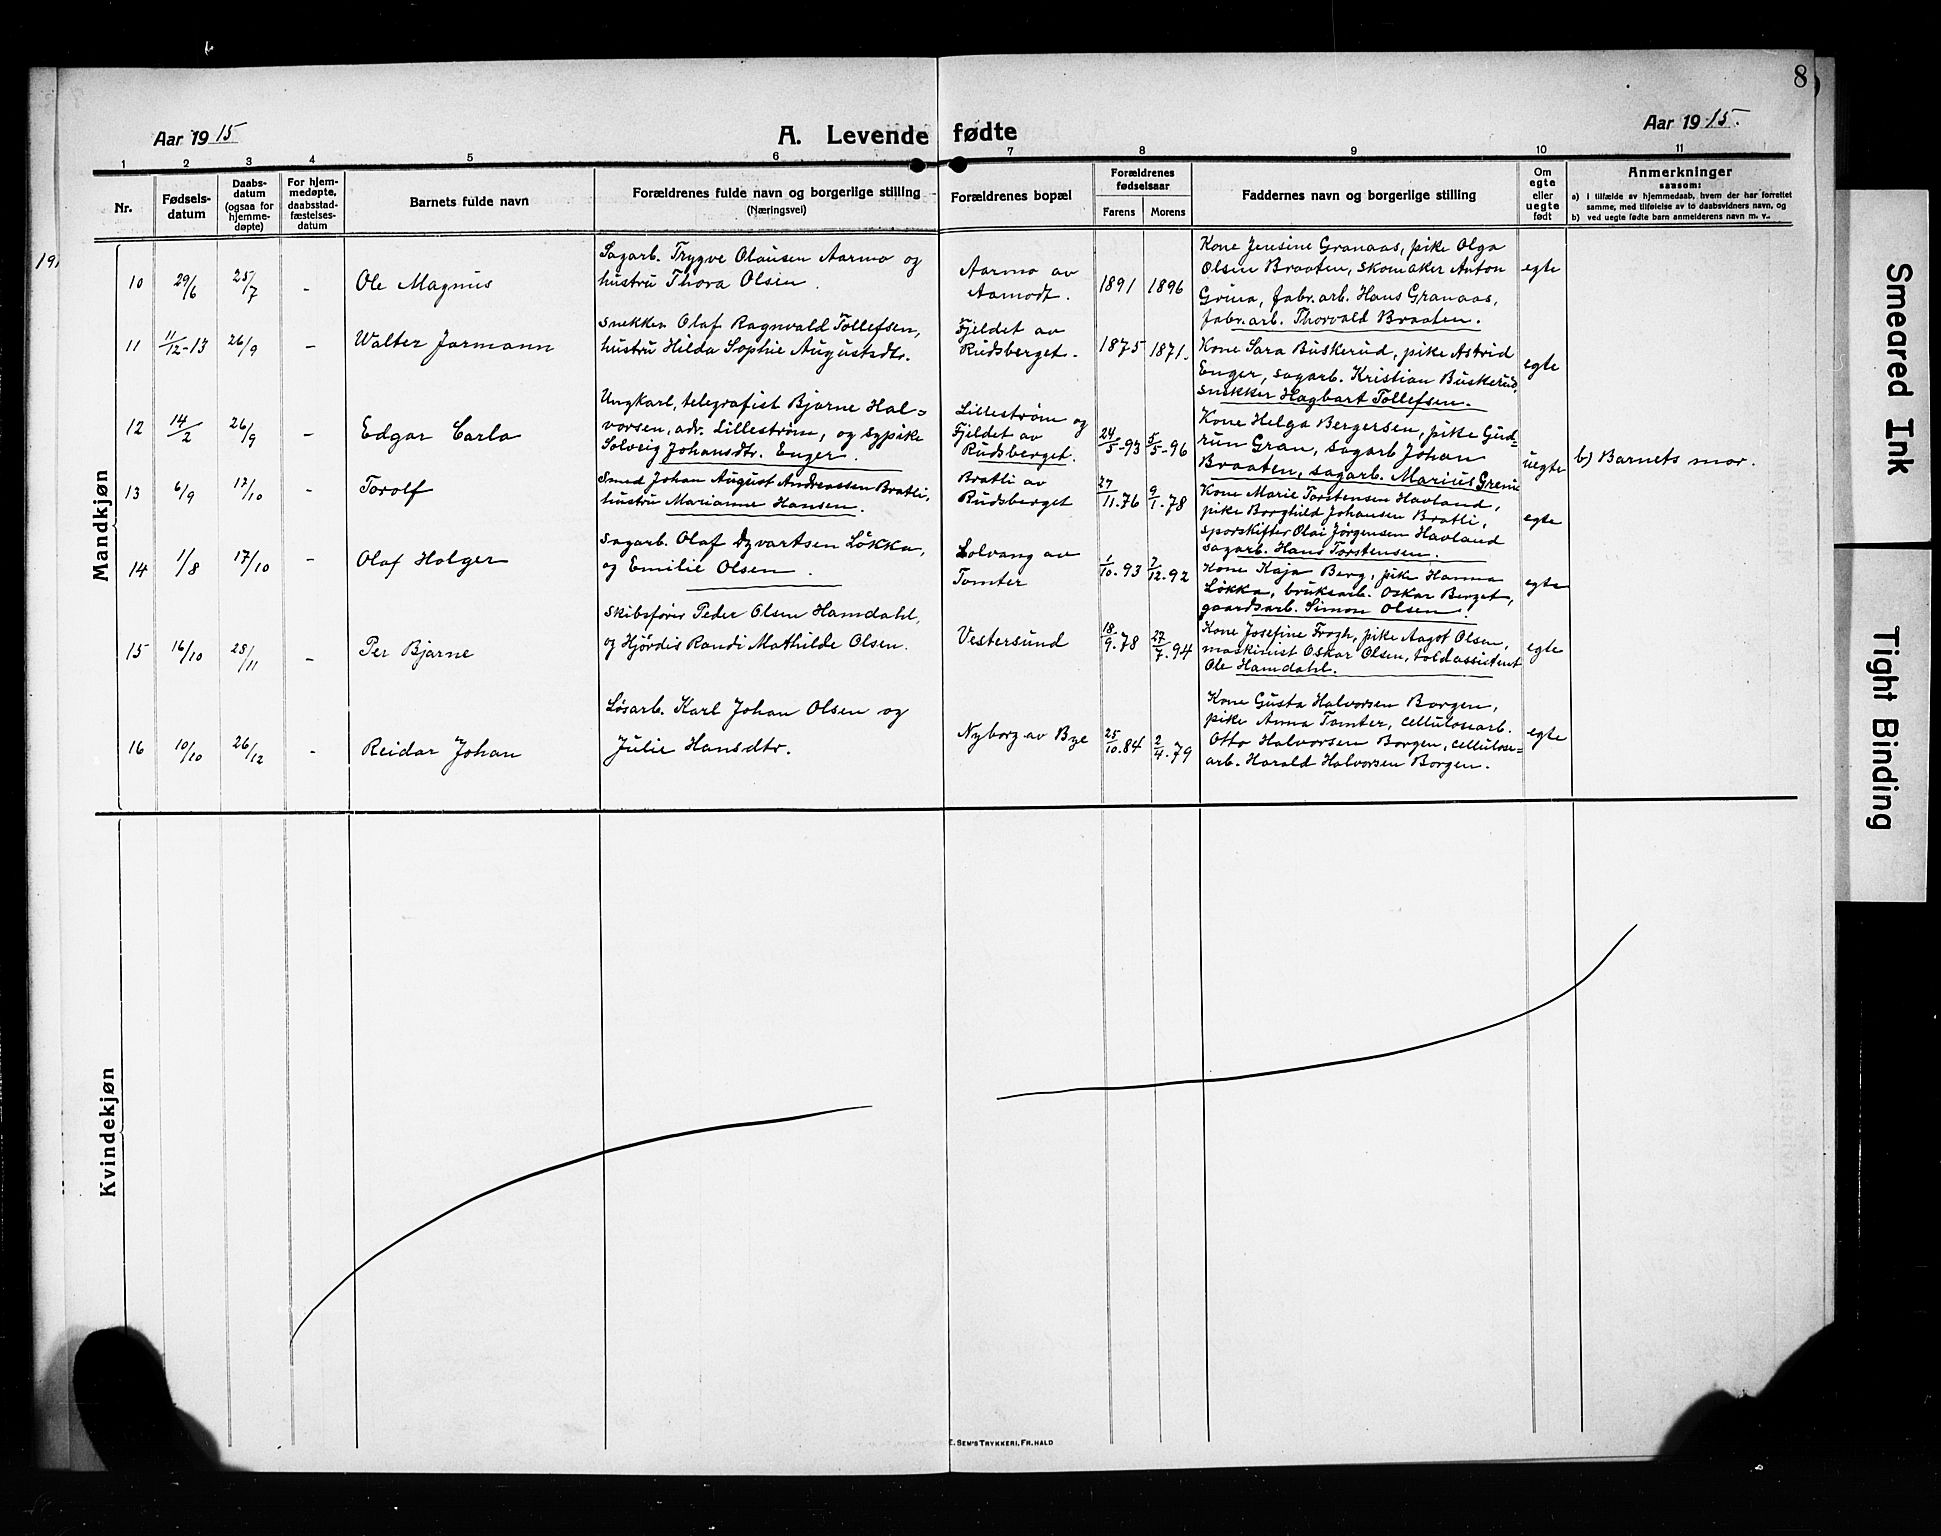 8
Aar 1915
A. Levende fødte
Aar 1915.
1 2 3 4 5 6 7 8 9 10 11
Nr.
Fødsels-
datum
Daabs-
datum
(ogsaa for
hjemme-
døpte)
For hjem-
medøpte,
daabsstad-
fæstelses-
datum
Barnets fulde navn
Forældrenes fulde navn og borgerlige stilling
(Næringsvei)
Forældrenes bopæl
Forældrenes
fødselsaar
Farens
Morens
Faddernes navn og borgerlige stilling
Om
egte
eller
uegte
født
Anmerkninger
saasom:
a) I tilfælde av hjemmedaab, hvem der har forrettet
samme, med tilføielse av to daabsvidners navn, og
b) ved uegte fødte barn anmelderens navn m. v..
191
Mandkjøn
10
29/6
25/7
-
Ole Magnus
Sagarb. Trygve Olausen Aarmo og
hustru Thora Olsen.
Aarmo av
Aamodt.
1891
1896
Kone Jensine Granaas, pike Olga
Olsen Braaten, skomaker Anton
Grina, fabr.arb. Hans Granaas,
fabr.arb. Thorvald Braaten.
egte
11
11/12-13
26/9
-
Walter Jarmann
Snekker Olaf Ragnvald Tollefsen,
hustru Hilda Sophie Augustsdtr.
Fjeldet av
Rudsberget.
1875
1871.
Kone Sara Buskerud, pike Astrid
Enger, sagarb. Kristian Buskerud,
snekker Hagbart Tollefsen.
egte
12
14/2
26/9
-
Edgar Carlo
Ungkarl, telegrafist Bjarne Hal-
vorsen, adr. Lillestrøm, og sypike
Solveig Johansdtr. Enger.
Lillestrøm og
Fjeldet av
Rudsberget.
24/5-93
5/5-96
Kone Helga Bergersen, pike Gud-
run Gran, sagarb Johan
Braaten, sagarb. Marius Grenie
uegte
b) Barnets mor.
13
6/9
17/10
-
Torolf
Smed Johan August Andreassen Bratli,
hustru Marianne Hansen.
Bratli av
Rudsberget
27/11.76
9/1.78
Kone Marie Torstensen Havland,
pike Borghild Johansen Bratli,
sporskifter Olai Jørgensen Havland
sagarb. Hans Torstensen.
egte
14
1/8
17/10
-
Olaf Holger
Sagarb. Olaf Dyvartsen Løkka,
og Emilie Olsen.
Solvang av
Tomter
1/10.93
7/12.92
Kone Kaja Berg, pike Hanna
Løkka, bruksarb. Oskar Berget,
gaardsarb. Simon Olsen.
egte
15
16/10
28/11
-
Per Bjarne
Skibsfører Peder Olsen Hamdahl,
og Hjørdis Randi Mathilde Olsen.
Vestersund
18/9.78
27/7.94
Kone Josefine Frogh, pike Aagot Olsen,
maskinist Oskar Olsen, toldassistent
Ole Hamdahl.
egte
16
10/10
26/12
-
Reidar Johan
Løsarb. Karl Johan Olsen og
Julie Hansdtr.
Nyborg av Bye
25/10.84
2/4.79
Kone Gusta Halvorsen Borgen,
pike Anna Tomter, cellulosearb.
Otto Halvorsen Borgen, cellulose-
arb. Harald Halvorsen Borgen.
egte
Kvindekjøn
E. SEM'S TRYKKERI, FR.HALD
Smeared Ink
Tight Binding